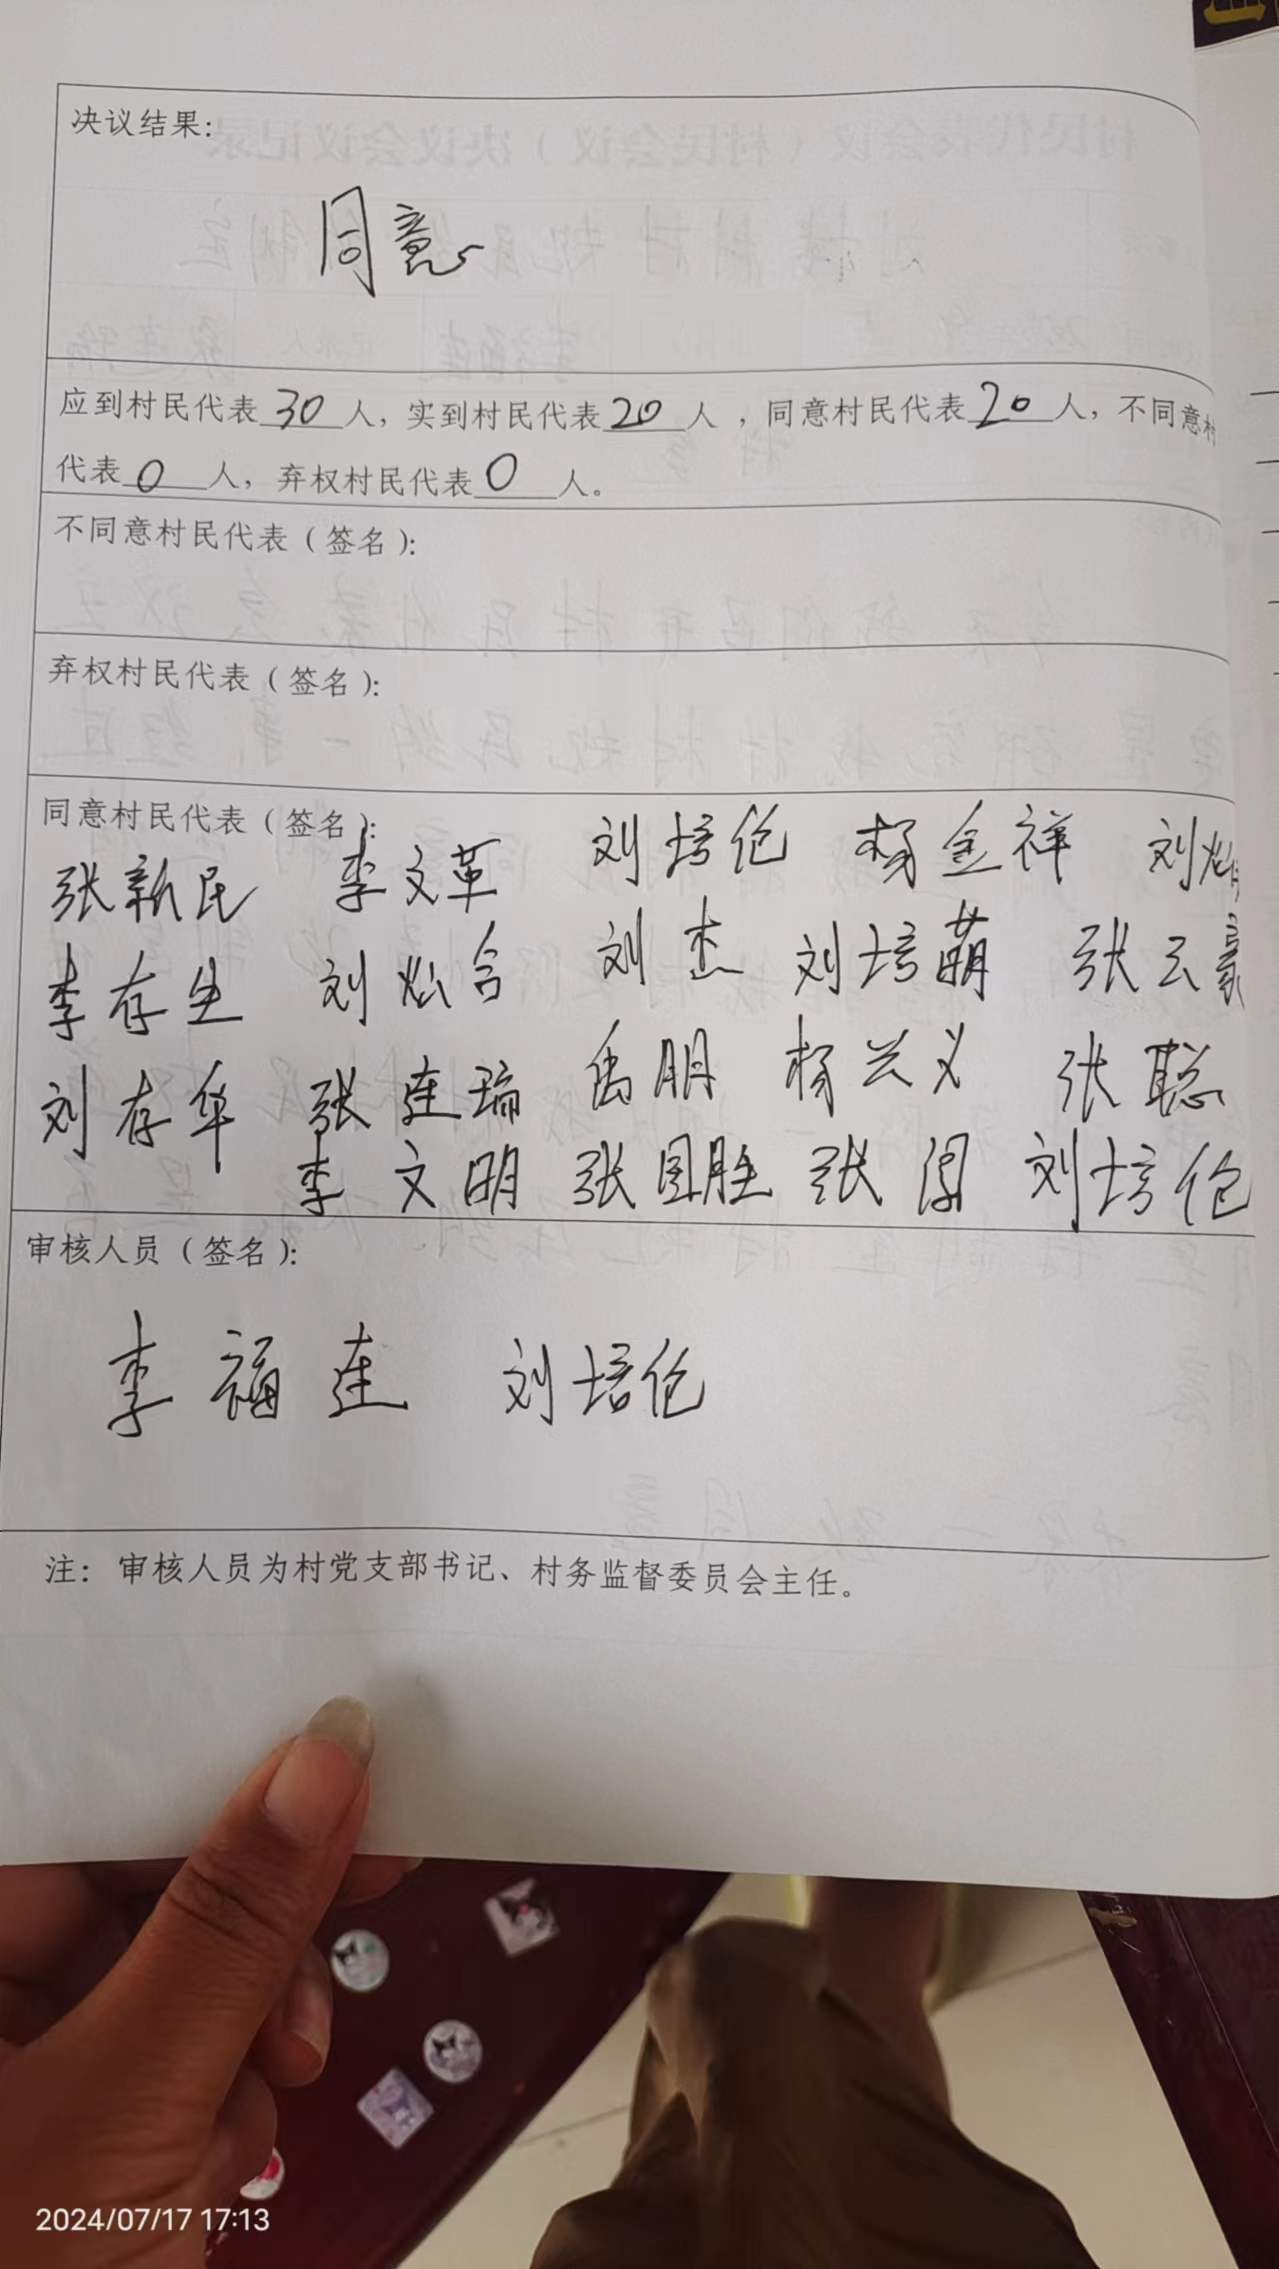 决议结果:
同意
应到村民代表30人，实到村民代表20人，同意村民代表20人，不同意村
代表0人，弃权村民代表0人。
不同意村民代表（签名）:
弃权村民代表（签名）:
同意村民代表（签名）:
张新民 李文革 刘培伦 杨金祥 刘
李存生 刘灿合 刘杰 刘培萌 张云豪
刘存华 张连瑞 禹朋 杨兴义 张聪
李文明 张国胜 张闯 刘培伦
审核人员（签名）:
李福连 刘培伦
注：审核人员为村党支部书记、村务监督委员会主任。
2024/07/17 17:13